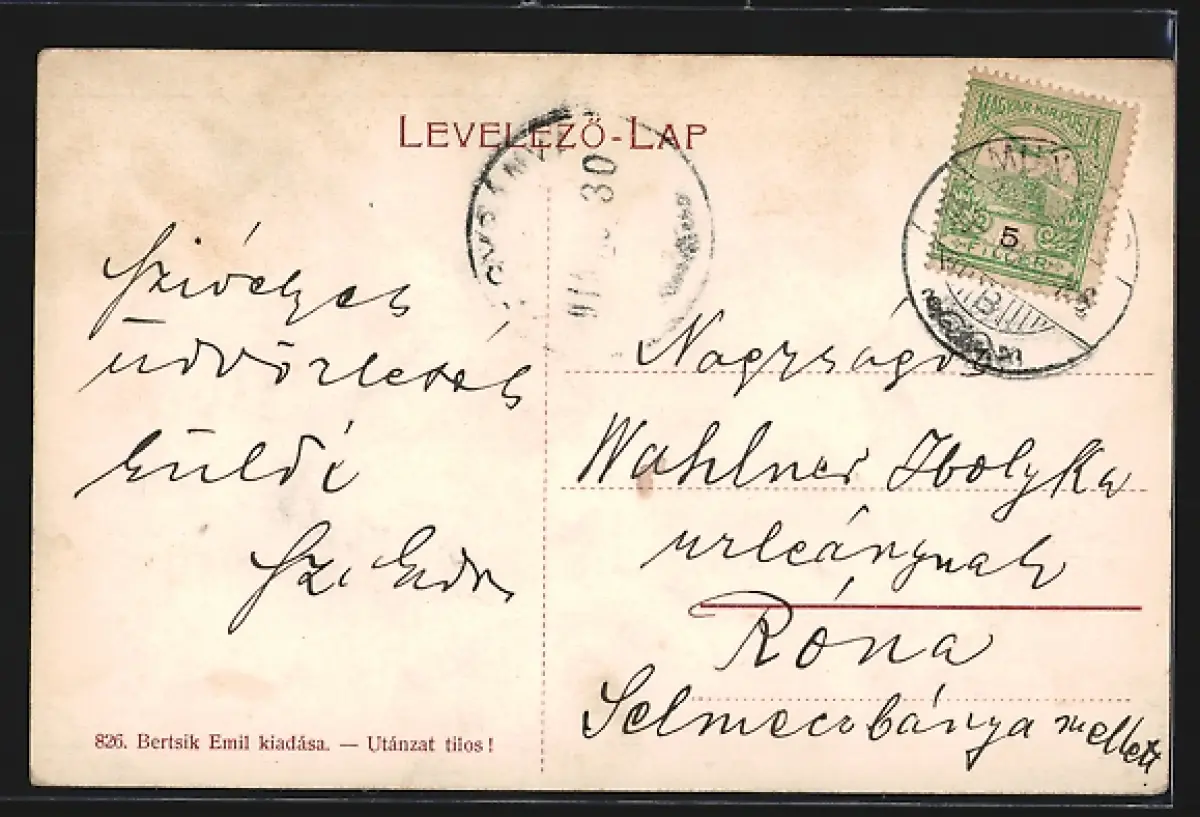 LEVELEZŐ-LAP
MAGYAR KIR. POSTA
5
FILLÉR
30
B
Szivélyes
üdvözletét
küldi
Sz.
Nagyságos
Wahlner Ibolyka
urleánynak
Róna
Selmeczbánya mellett
826. Bertsik Emil kiadása. — Utánzat tilos!